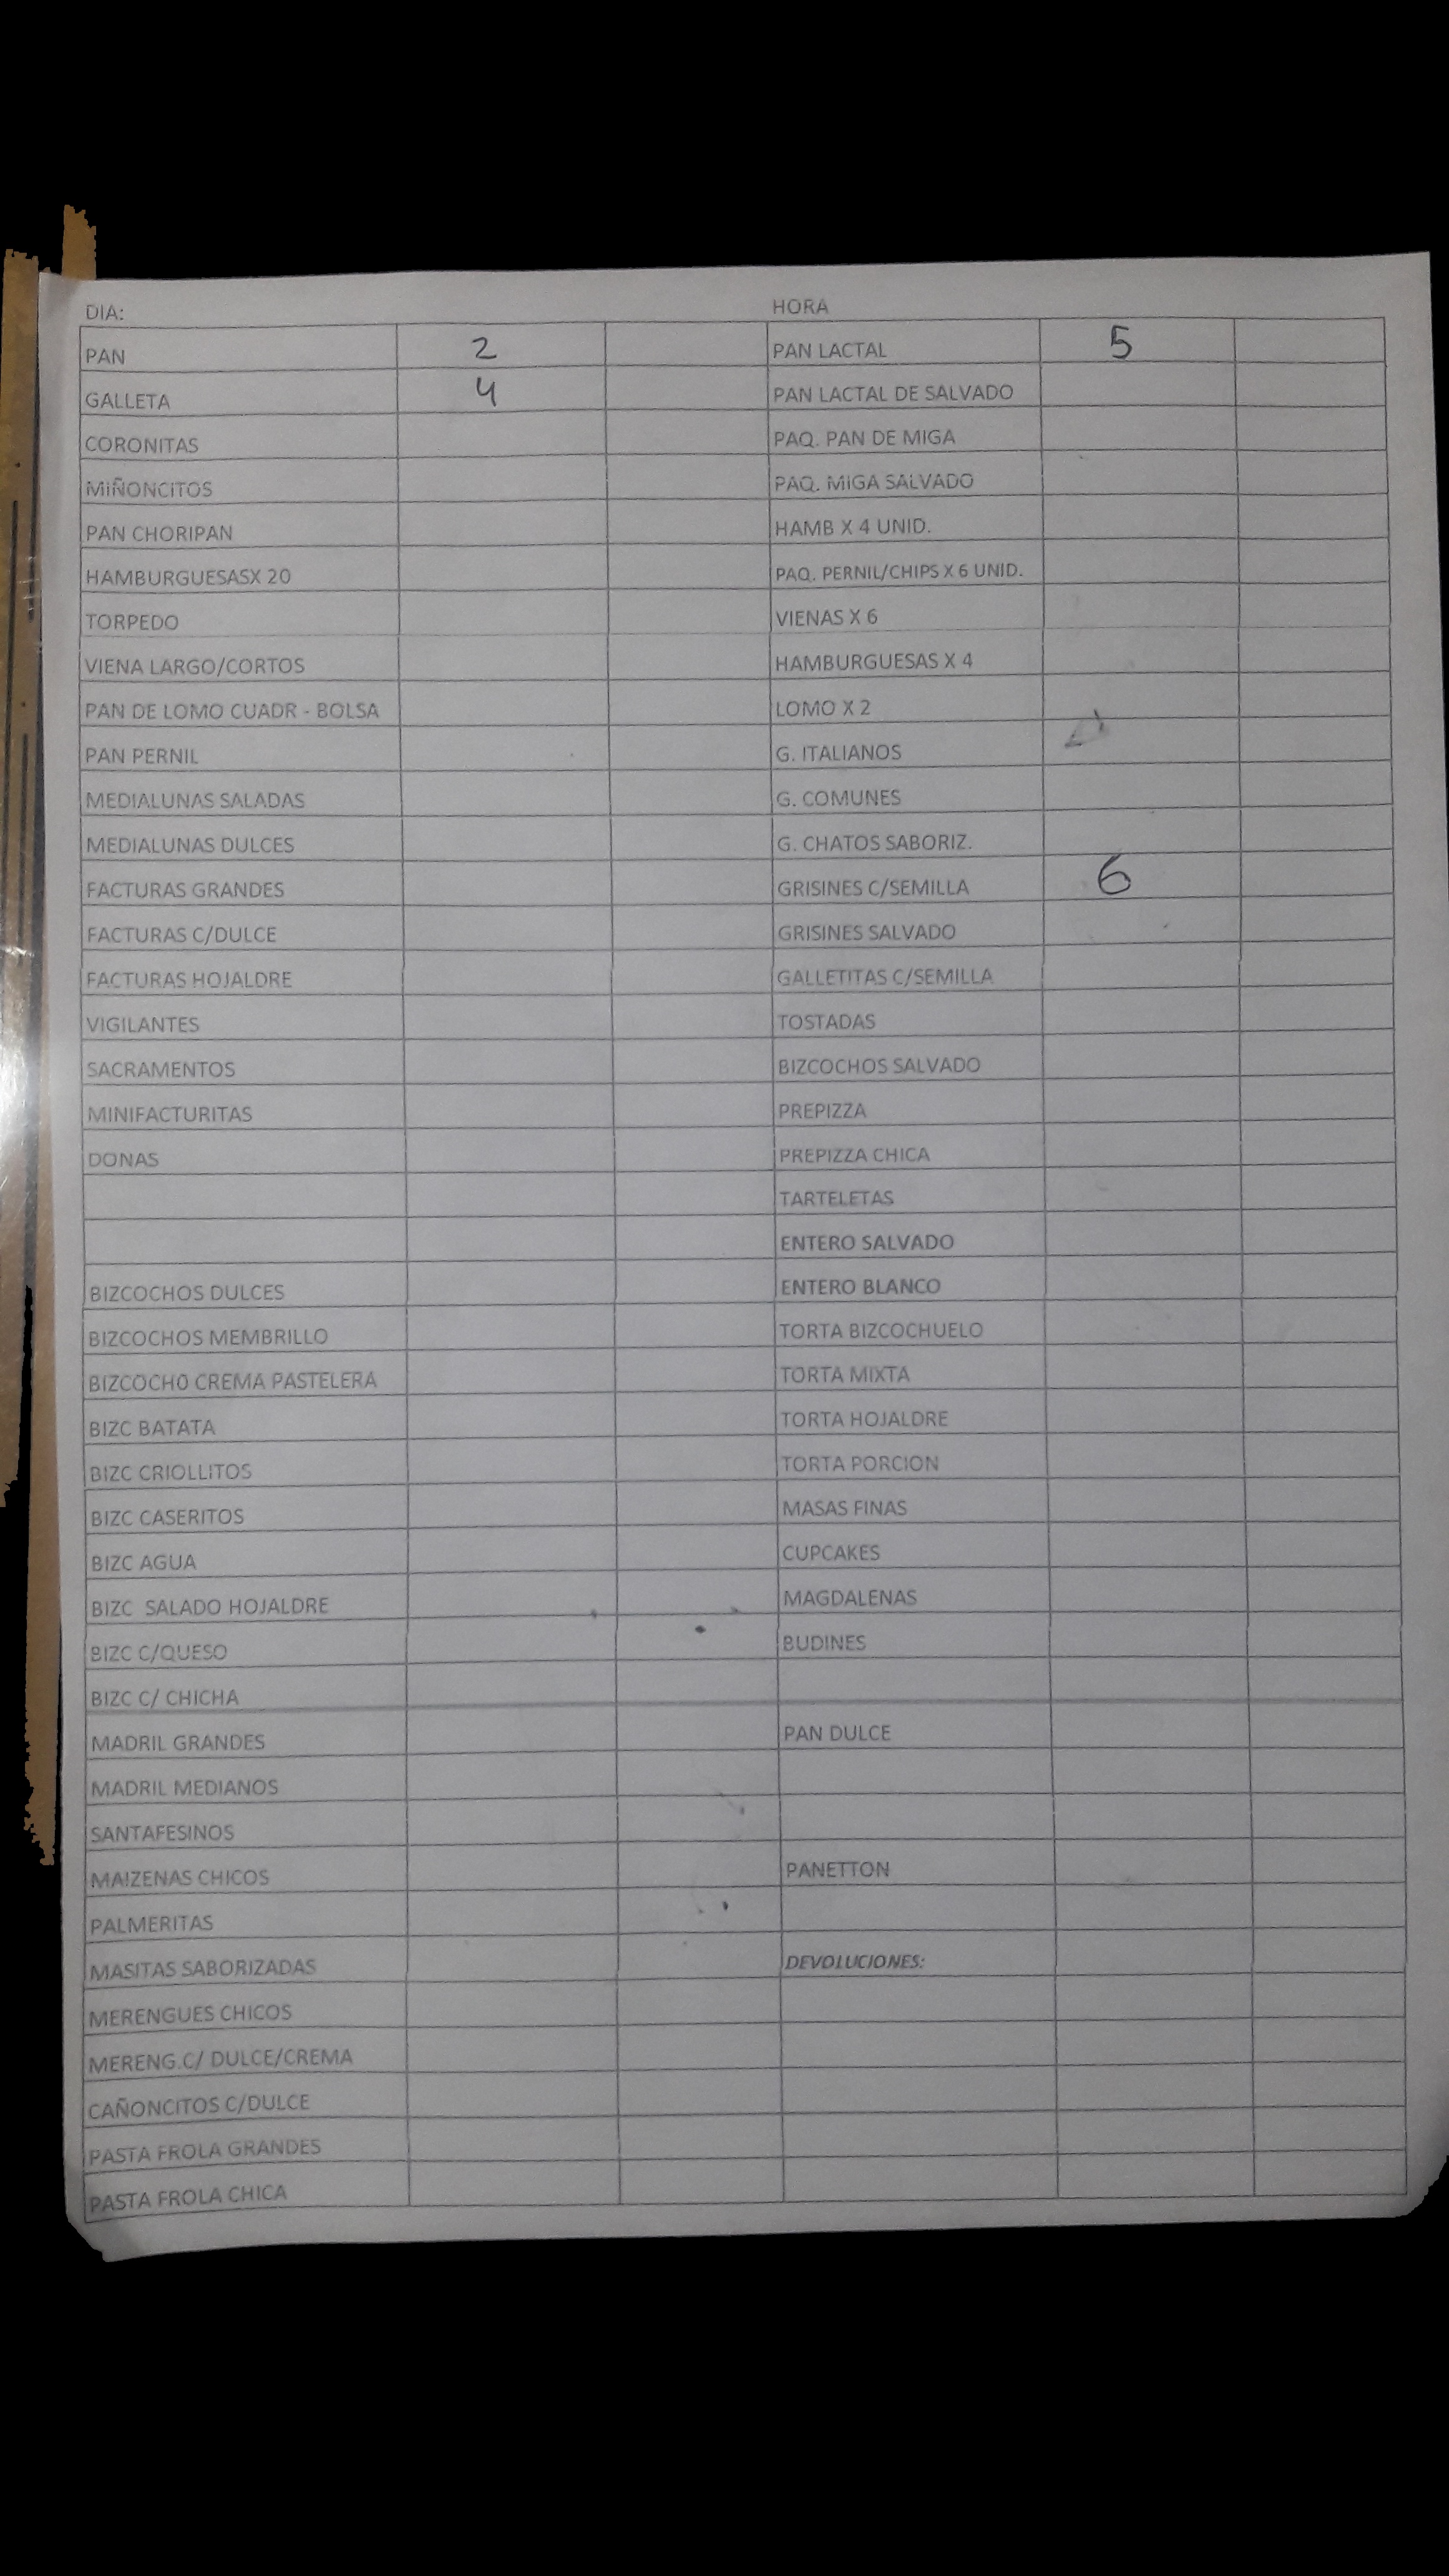 DIA: HORA
PAN 2 PAN LACTAL 5
GALLETA 4 PAN LACTAL DE SALVADO
CORONITAS PAQ. PAN DE MIGA
MIÑONCITOS PAQ. MIGA SALVADO
PAN CHORIPAN HAMB X 4 UNID.
HAMBURGUESASX 20 PAQ. PERNIL/CHIPS X 6 UNID.
TORPEDO VIENAS X 6
VIENA LARGO/CORTOS HAMBURGUESAS X 4
PAN DE LOMO CUADR - BOLSA LOMO X 2
PAN PERNIL G. ITALIANOS
MEDIALUNAS SALADAS G. COMUNES
MEDIALUNAS DULCES G. CHATOS SABORIZ.
FACTURAS GRANDES GRISINES C/SEMILLA 6
FACTURAS C/DULCE GRISINES SALVADO
FACTURAS HOJALDRE GALLETITAS C/SEMILLA
VIGILANTES TOSTADAS
SACRAMENTOS BIZCOCHOS SALVADO
MINIFACTURITAS PREPIZZA
DONAS PREPIZZA CHICA
TARTELETAS
ENTERO SALVADO
BIZCOCHOS DULCES ENTERO BLANCO
BIZCOCHOS MEMBRILLO TORTA BIZCOCHUELO
BIZCOCH0 CREMA PASTELERA TORTA MIXTA
BIZC BATATA TORTA HOJALDRE
BIZC CRIOLLITOS TORTA PORCION
BIZC CASERITOS MASAS FINAS
BIZC AGUA CUPCAKES
BIZC SALADO HOJALDRE MAGDALENAS
BIZC C/QUESO BUDINES
BIZC C/ CHICHA
MADRIL GRANDES PAN DULCE
MADRIL MEDIANOS
SANTAFESINOS
MAIZENAS CHICOS PANETTON
PALMERITAS
MASITAS SABORIZADAS DEVOLUCIONES:
MERENGUES CHICOS
MERENG.C/ DULCE/CREMA
CAÑONCITOS C/DULCE
PASTA FROLA GRANDES
PASTA FROLA CHICA